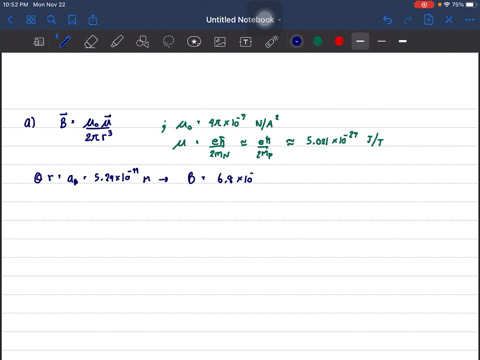 10:52 PM Mon Nov 22
75%
Untitled Notebook
a) B⃗ = μ₀ μ⃗ / 2πr³ ; μ₀ = 4π × 10⁻⁷ N/A²
μ = eħ / 2m_N ≈ eħ / 2m_p ≈ 5.021 × 10⁻²⁷ J/T
@ r = a_B = 5.29 × 10⁻¹¹ m → B = 6.8 × 10⁻